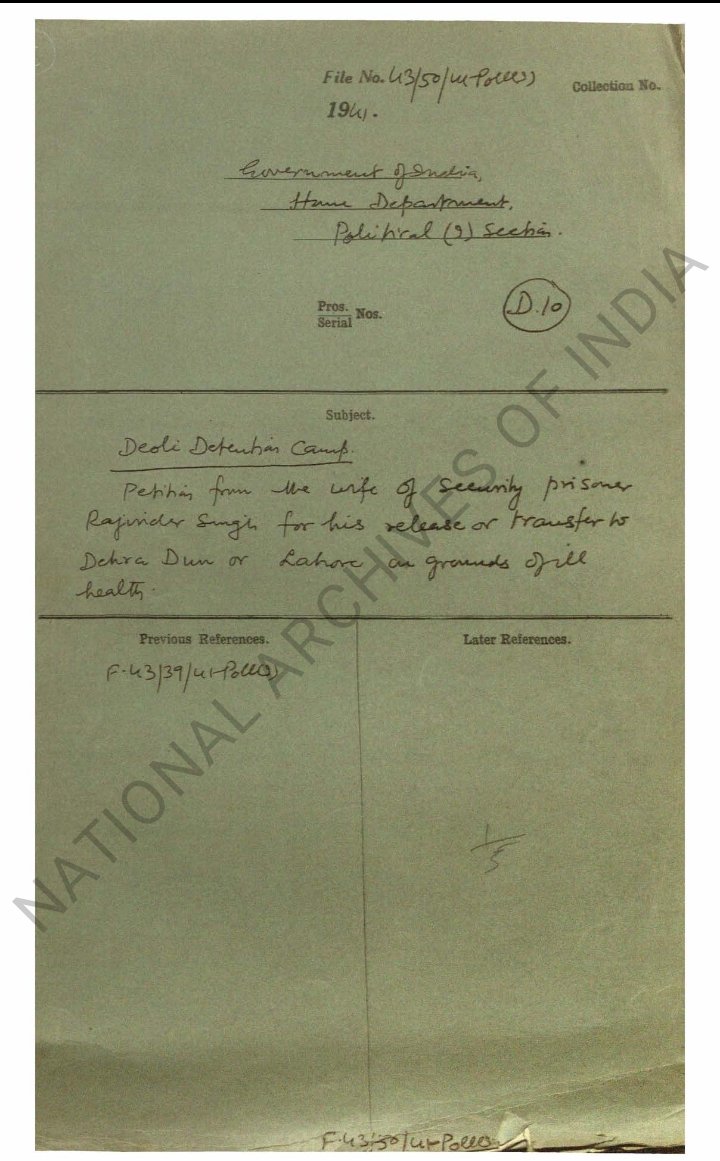 File No. 43/50/41-Poll(I)
Collection No.
1941.
Government of India,
Home Department,
Political (I) Section.
Pros.
Serial Nos.
D.10
Subject.
Deoli Detention Camp.
Petition from the wife of Security prisoner
Rajinder Singh for his release or transfer to
Dehra Dun or Lahore on grounds of ill
health.
Previous References.
Later References.
F.43/39/41-Poll(I)
1/5
F.43/50/41-Poll(I)
NATIONAL ARCHIVES OF INDIA